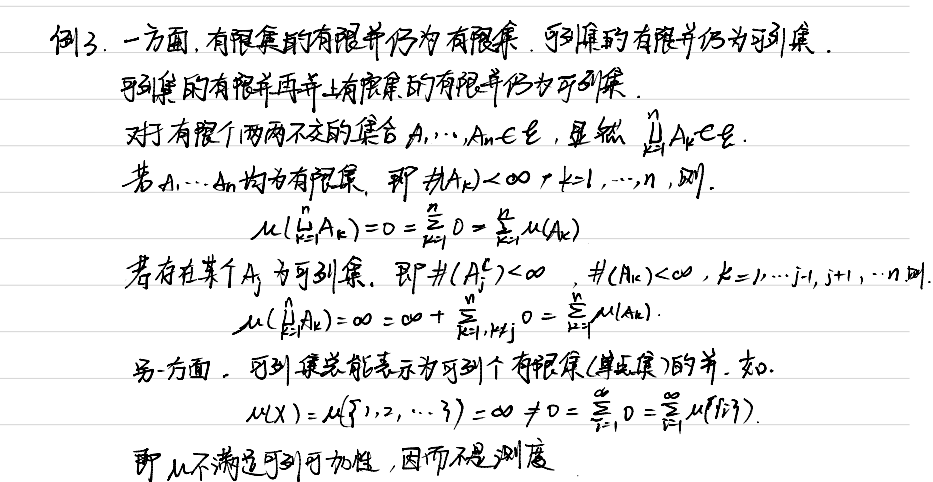 例3. 一方面,有限集的有限并仍为有限集.可列集的有限并仍为可列集.
可列集的有限并再并上有限集的有限并仍为可列集.
对于有限个两两不交的集合 A₁,…,Aₙ∈ℰ,显然 ⨆ₖ₌₁ⁿ Aₖ∈ℰ.
若 A₁…Aₙ 均为有限集,即 #(Aₖ)<∞,k=1,…,n,则.
μ(⨆ₖ₌₁ⁿ Aₖ)=0=∑ₖ₌₁ⁿ 0=∑ₖ₌₁ⁿ μ(Aₖ)
若存在某个 Aⱼ 为可列集.即 #(Aⱼᶜ)<∞,#(Aₖ)<∞,k=1,…j-1,j+1,…n 则.
μ(⨆ₖ₌₁ⁿ Aₖ)=∞=∞+∑ₖ₌₁,ₖ≠ⱼⁿ 0=∑ₖ₌₁ⁿ μ(Aₖ).
另一方面.可列集总能表示为可列个有限集(单点集)的并.如.
μ(X)=μ({1,2,…})=∞≠0=∑ᵢ₌₁^∞ 0=∑ᵢ₌₁^∞ μ({i}).
即 μ 不满足可列可加性,因而不是测度